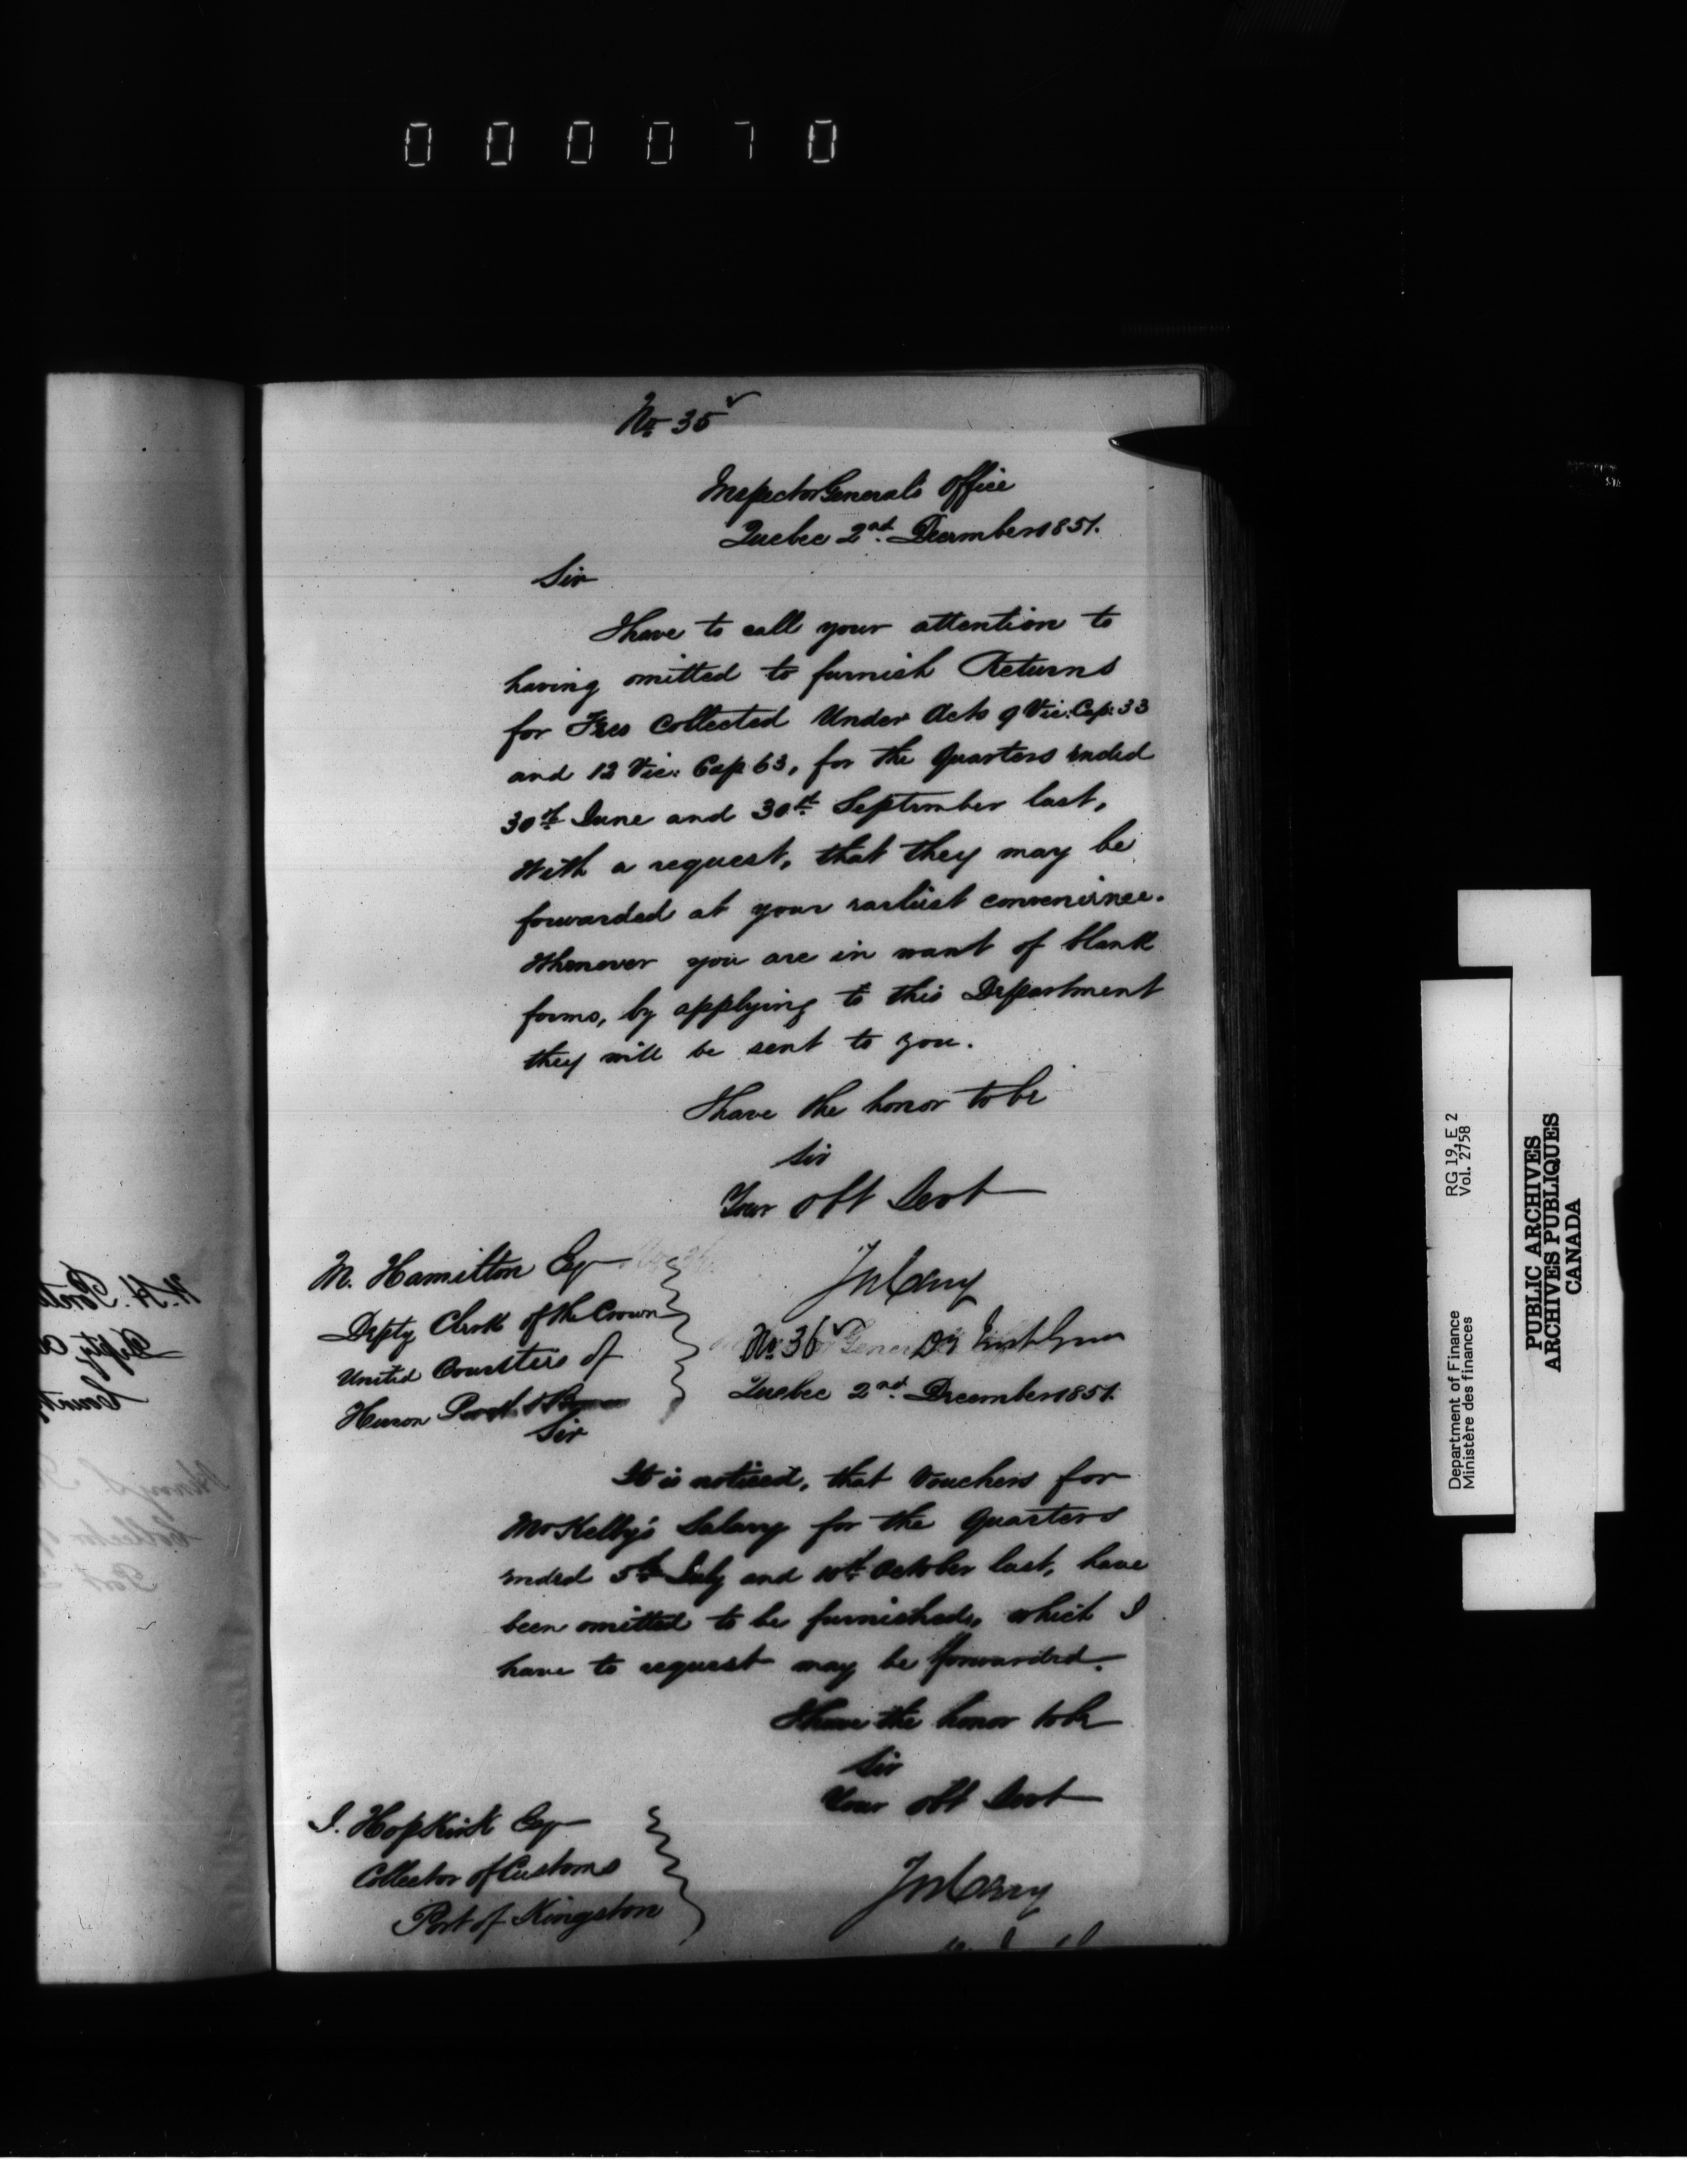 000070
No 35
Inspector General's Office
Quebec 2nd December 1851.
Sir
I have to call your attention to
having omitted to furnish Returns
for Fees collected Under Acts 9 Vic: Cap: 33
and 12 Vic: Cap 63, for the Quarters ended
30th June and 30th September last,
With a request, that they may be
forwarded at your earliest convenience.
Whenever you are in want of blank
forms, by applying to this Department
they will be sent to you.
I have the honor to be
Sir
Your obt Servt
M. Hamilton Esq
Depty Clerk of the Crown
United Counties of
Huron Perth & Bruce
Jn Cary
Dy Inspt Genl
No 36
Quebec 2nd December 1851.
Sir
It is noticed, that Vouchers for
Mr Kelly's Salary for the Quarters
ended 5th July and 10th October last, have
been omitted to be furnished, which I
have to request may be forwarded.
I have the honor to be
Sir
Your obt Servt
J. Hopkirk Esq
Collector of Customs
Port of Kingston
Jn Cary
Department of Finance
Ministère des finances
RG 19, E 2
Vol. 2758
PUBLIC ARCHIVES
ARCHIVES PUBLIQUES
CANADA